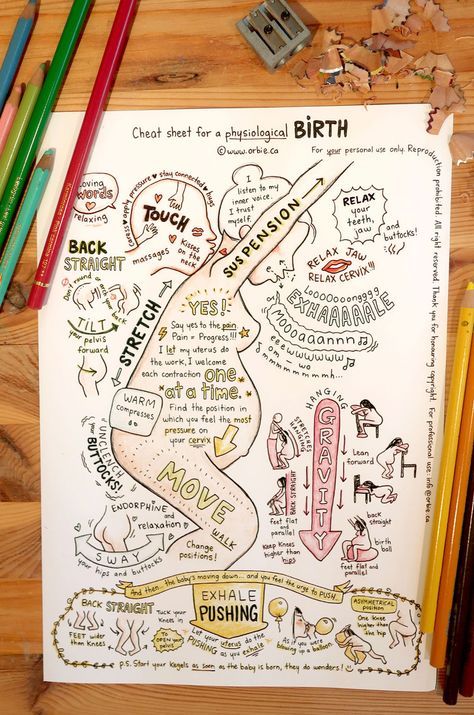 Cheat sheet for a physiological BiRTH
©www.orbie.ca
For your personal use only. Reproduction prohibited. All right reserved. Thank you for honouring copyright. For professional use: info@orbie.ca
Loving
WORDS
relaxing
caress • apply pressure • stay connected • hugs
TOUCH
massages
Kisses
on the
neck
I
listen to my
inner voice.
I trust
myself.
SUSPENSION
RELAX
your
teeth,
jaw
and buttocks!
RELAX JAW
RELAX CERVIX!!!
Looooooongggg
EXHAAAAALE
Moooaaannn
eeewwwwww
ommmmmmmh...
BACK
STRAIGHT
Don't round
arch
back
TILT
your
pelvis
forward
STRETCH
YES!
Say yes to the pain
Pain = Progress!!!
I let my uterus do
the work, I welcome
each contraction one
at a time.
Find the position in
which you feel the most
pressure on
your cervix
WARM
compresses
UNCLENCH
your
BUTTOCKS!
ENDORPHINE
and
relaxation
SWAY
your hips and buttocks
MOVE
WALK
Change
positions!
HANGING
STRETCHES
HANGING
GRAVITY
Lean
forward
BACK STRAIGHT
feet flat
and
parallel
Keep knees
higher than
hips
back
straight
birth
ball
feet flat and
parallel
And then... the baby's moving down... and you feel the urge to PUSH...
BACK STRAIGHT
FEET wider
than knees
Tuck your
knees in
TO OPEN your
pelvis
EXHALE
PUSHING
Let your uterus do the
PUSHING as you exhale
As if you were
blowing up a balloon.
ASYMMETRICAL
position
One knee
higher than
the hip
P.S. Start your Kegels as soon as the baby is born, they do wonders!